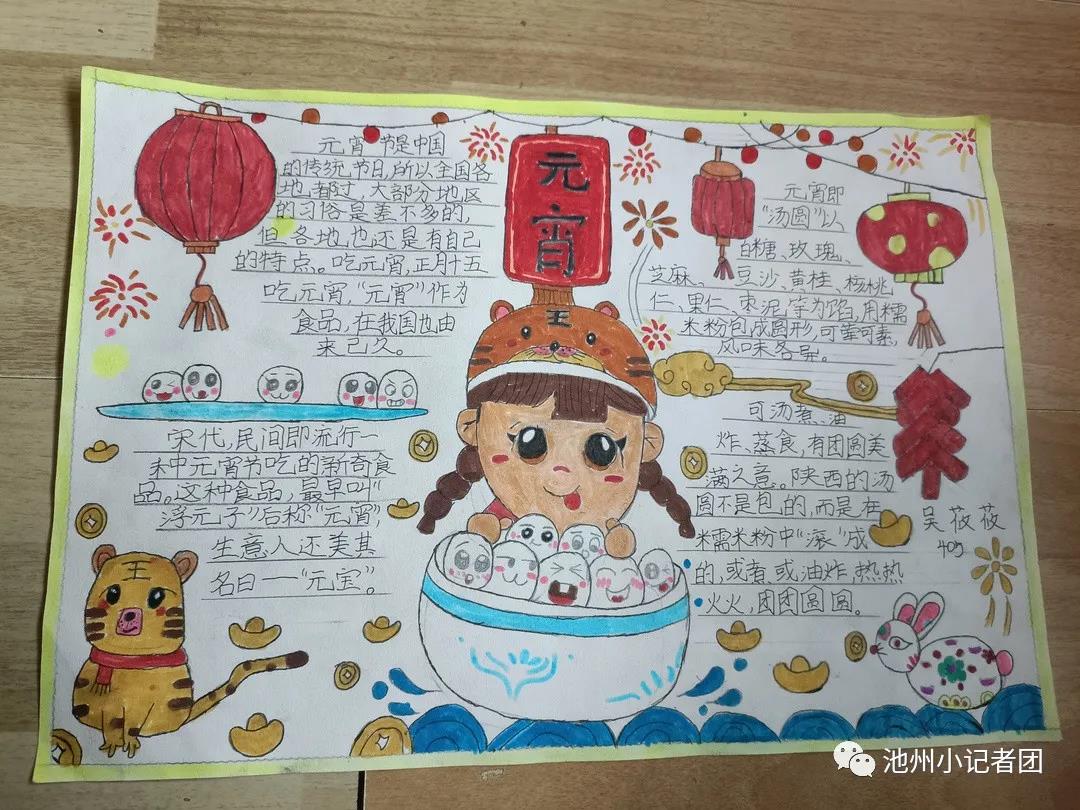 元宵节是中国
的传统节日,所以全国各
地都过,大部分地区
的习俗是差不多的,
但各地也还是有自己
的特点。吃元宵,正月十五
吃元宵,“元宵”作为
食品,在我国也由
来已久。
宋代,民间即流行一
种元宵节吃的新奇食
品。这种食品,最早叫“
浮元子”后称“元宵”,
生意人还美其
名曰一“元宝”。
元
宵
王
王
元宵即
“汤圆”以、
白糖、玫瑰、
芝麻、豆沙、黄桂、核桃
仁、果仁、枣泥,等为馅,用糯
米粉包成圆形,可荤可素,
风味各异。
可汤煮、油
炸、蒸食,有团圆美
满之意。陕西的汤
圆不是包的,而是在
糯米粉中“滚”成
的,或者或油炸,热热
火火,团团圆圆。
吴莜莜
池州小记者团